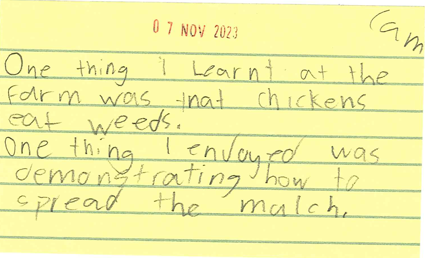 07 NOV 2023
Cam
One thing I Learnt at the
farm was that chickens
eat weeds.
One thing I enjoyed was
demonstrating how to
spread the mulch.